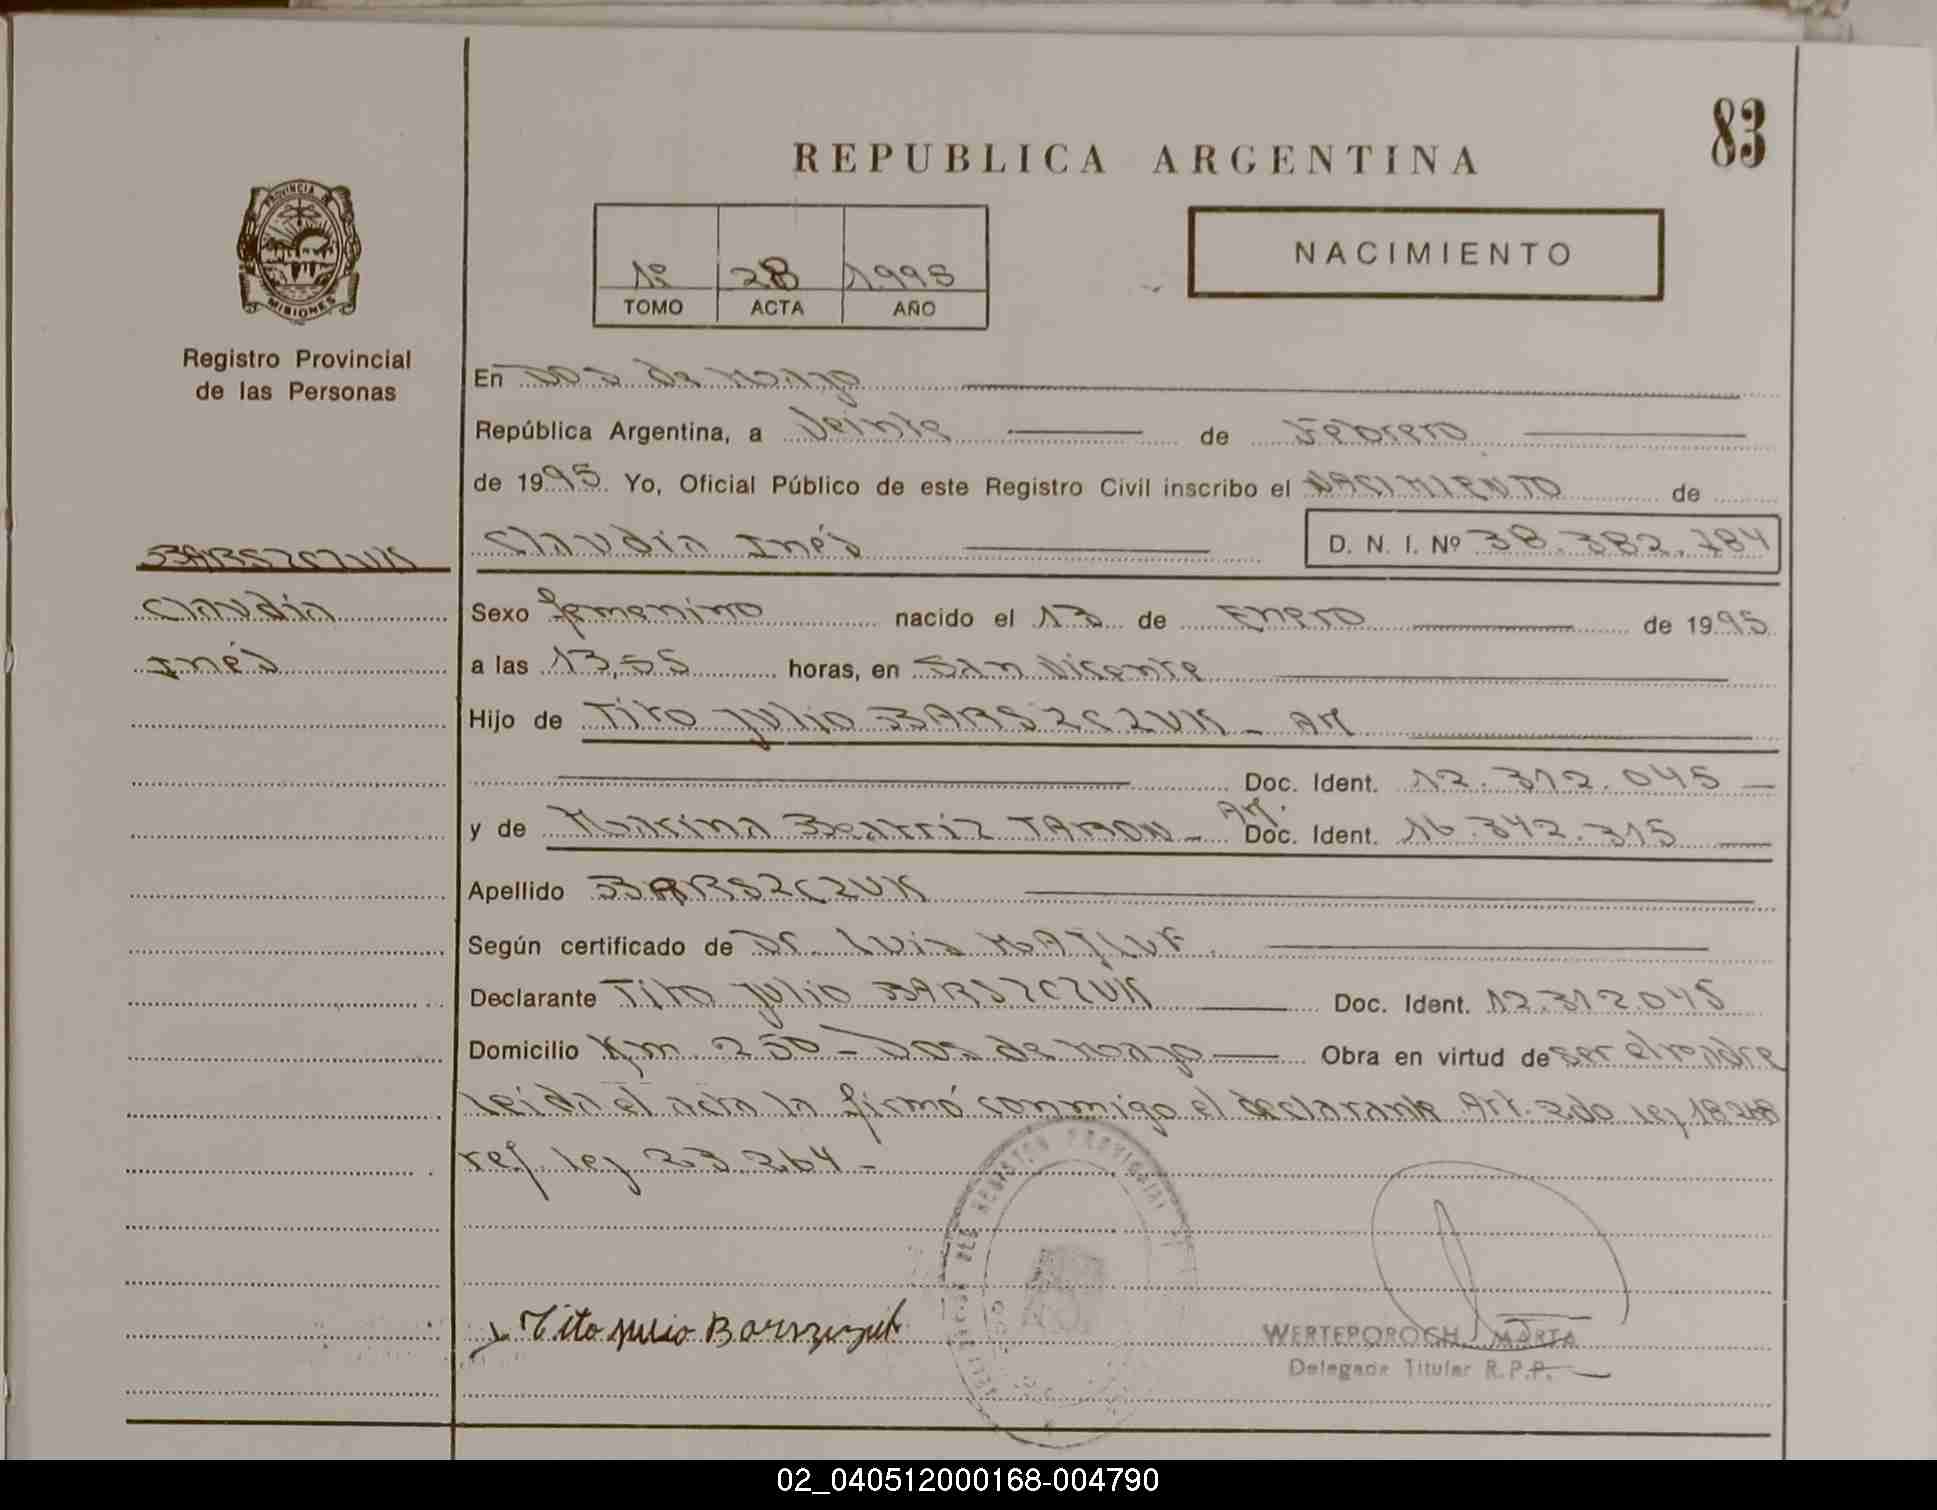 83
REPUBLICA ARGENTINA
PROVINCIA
MISIONES
1º 28 1995
TOMO ACTA AÑO
NACIMIENTO
Registro Provincial
de las Personas
En Dos de Mayo
República Argentina, a Veinte de Febrero
de 1995 Yo, Oficial Público de este Registro Civil inscribo el NACIMIENTO de
BARSZCZUK Claudia Inés D. N. I. Nº 38.382.784
Claudia Sexo femenino nacido el 13 de Enero de 1995
Inés a las 13,55 horas, en San Vicente
Hijo de Tito Julio BARSZCZUK - AR
Doc. Ident. 12.312.045
y de Marina Beatriz TABON - Ar. Doc. Ident. 16.342.315
Apellido BARSZCZUK
Según certificado de Dr. Luis MAJLUF.
Declarante Tito Julio BARSZCZUK Doc. Ident. 12.312.045
Domicilio Km 250 - Dos de Mayo Obra en virtud de ser el padre
Leída el acta la firmó conmigo el declarante Art. 2do ley 18248
ref. ley 23.264 -
REGISTRO PROVINCIAL
Tito Julio Barszczuk
WERTEPOROCH, MARTA
Delegada Titular R.P.P.
02_040512000168-004790